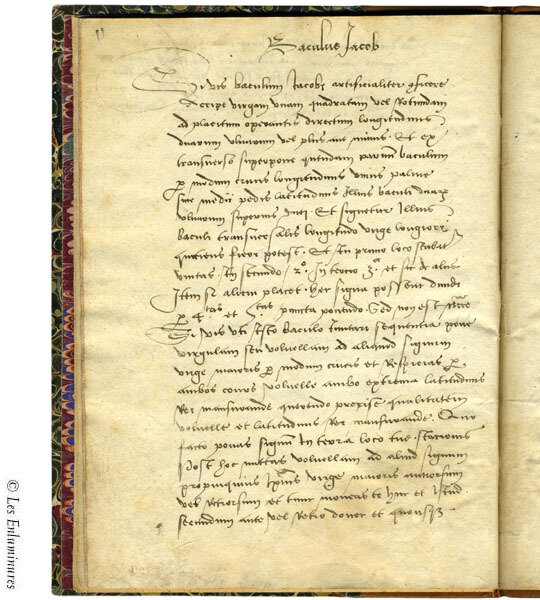 Baculus Jacob
Si vis baculum Jacobi artificialiter conficere
Accipe virgam unam quadratam vel Rotundam
ad placitum operantis directam longitudinis
duarum ulnarum vel plus aut minus. Et ex
transverso superpone quendam parvum baculum
per modum crucis longitudinis unius palme
sive medii pedis latitudinis Illius baculi duarum
ulnarum superius Et signetur Illius
baculi transversalis longitudo virge longiori
quociens fieri potest. Et In primo loco scribatur
unitas. In secundo 2º. In tercio 3ª et sic de aliis
Item si alicui placet. hec signa possent dividi
per 4tas et puncta ponendo. Sed non est
Si vis uti Isto baculo mensurari sequencia, pone
virgulam seu volvellam ad aliquod signum
virge maioris per modum crucis et Respicias per
ambos conos volvelle ambo extrema latitudinis
Rei mensurande querendo precise equalitatem
volvelle et latitudinis Rei mensurande. Quo
facto ponas signum In terra loco tue stacionis
Post hoc mittas volvellam ad aliud signum
propinquius virge maioris anteriorsum
vel Retrorsum et tunc moveas te hinc et Istud
secundum ante vel Retro donec et quousque